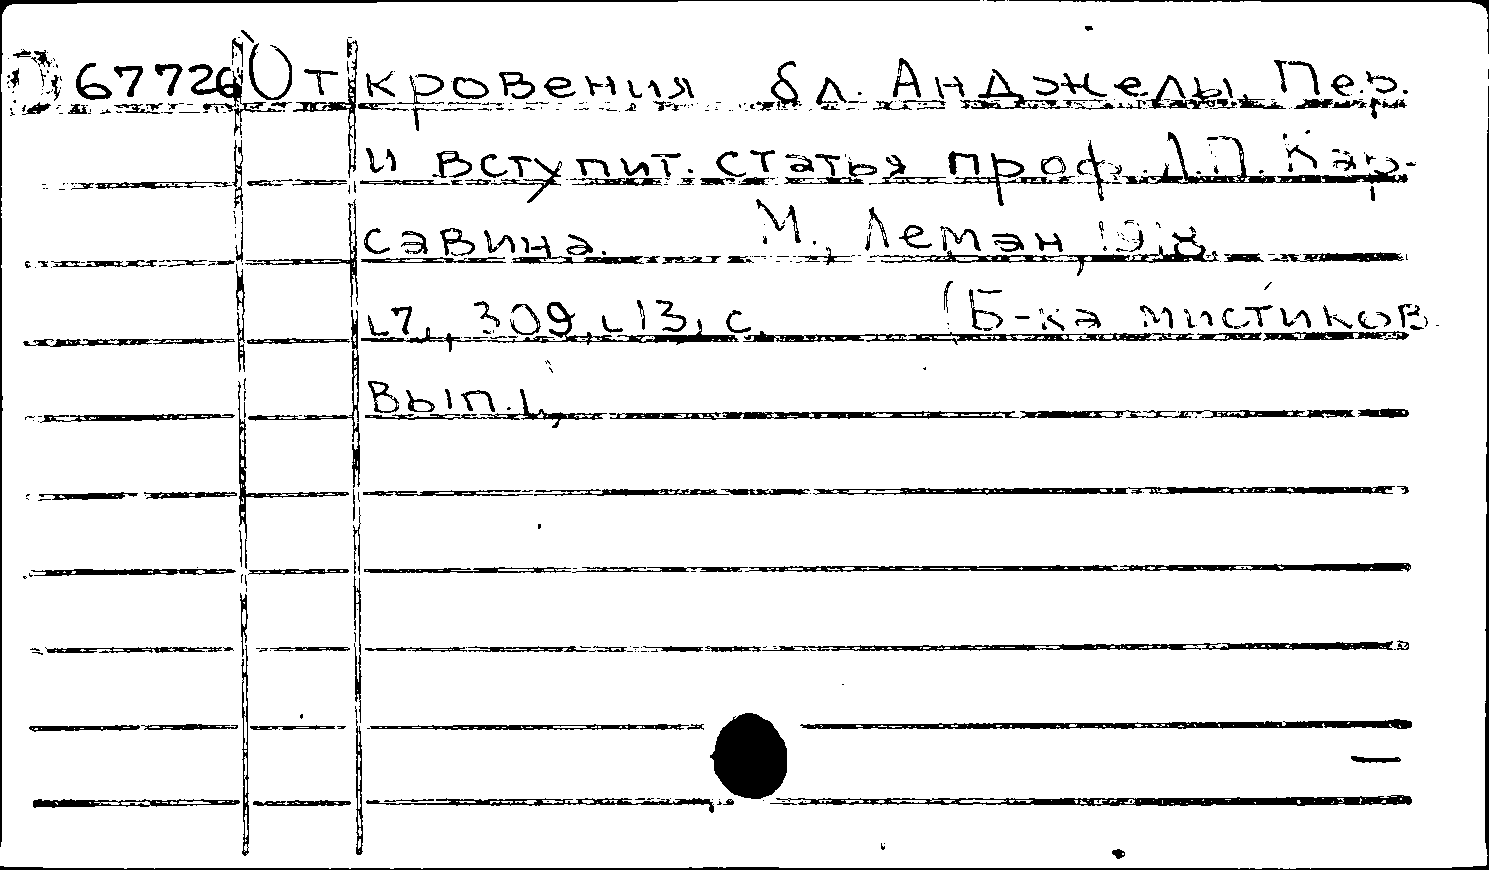 67726 Откровения бл. Анджелы. Пер.
и вступит. статья проф. Л.П. Кар-
савина. М., Леман, 1918.
[7], 309, [13] с. (Б-ка мистиков
Вып. 1)